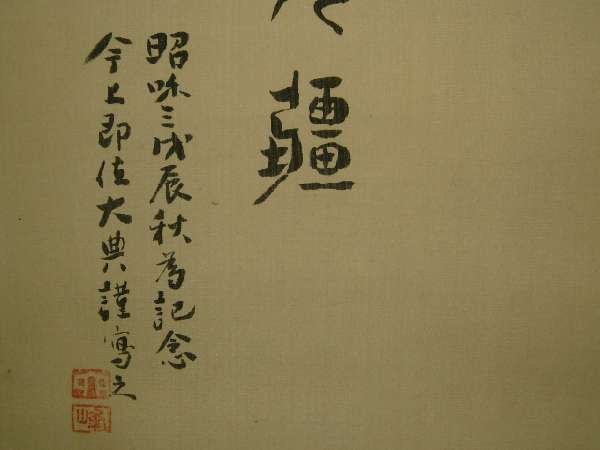 疆
昭和三戊辰秋為記念
今上即位大典謹寫之